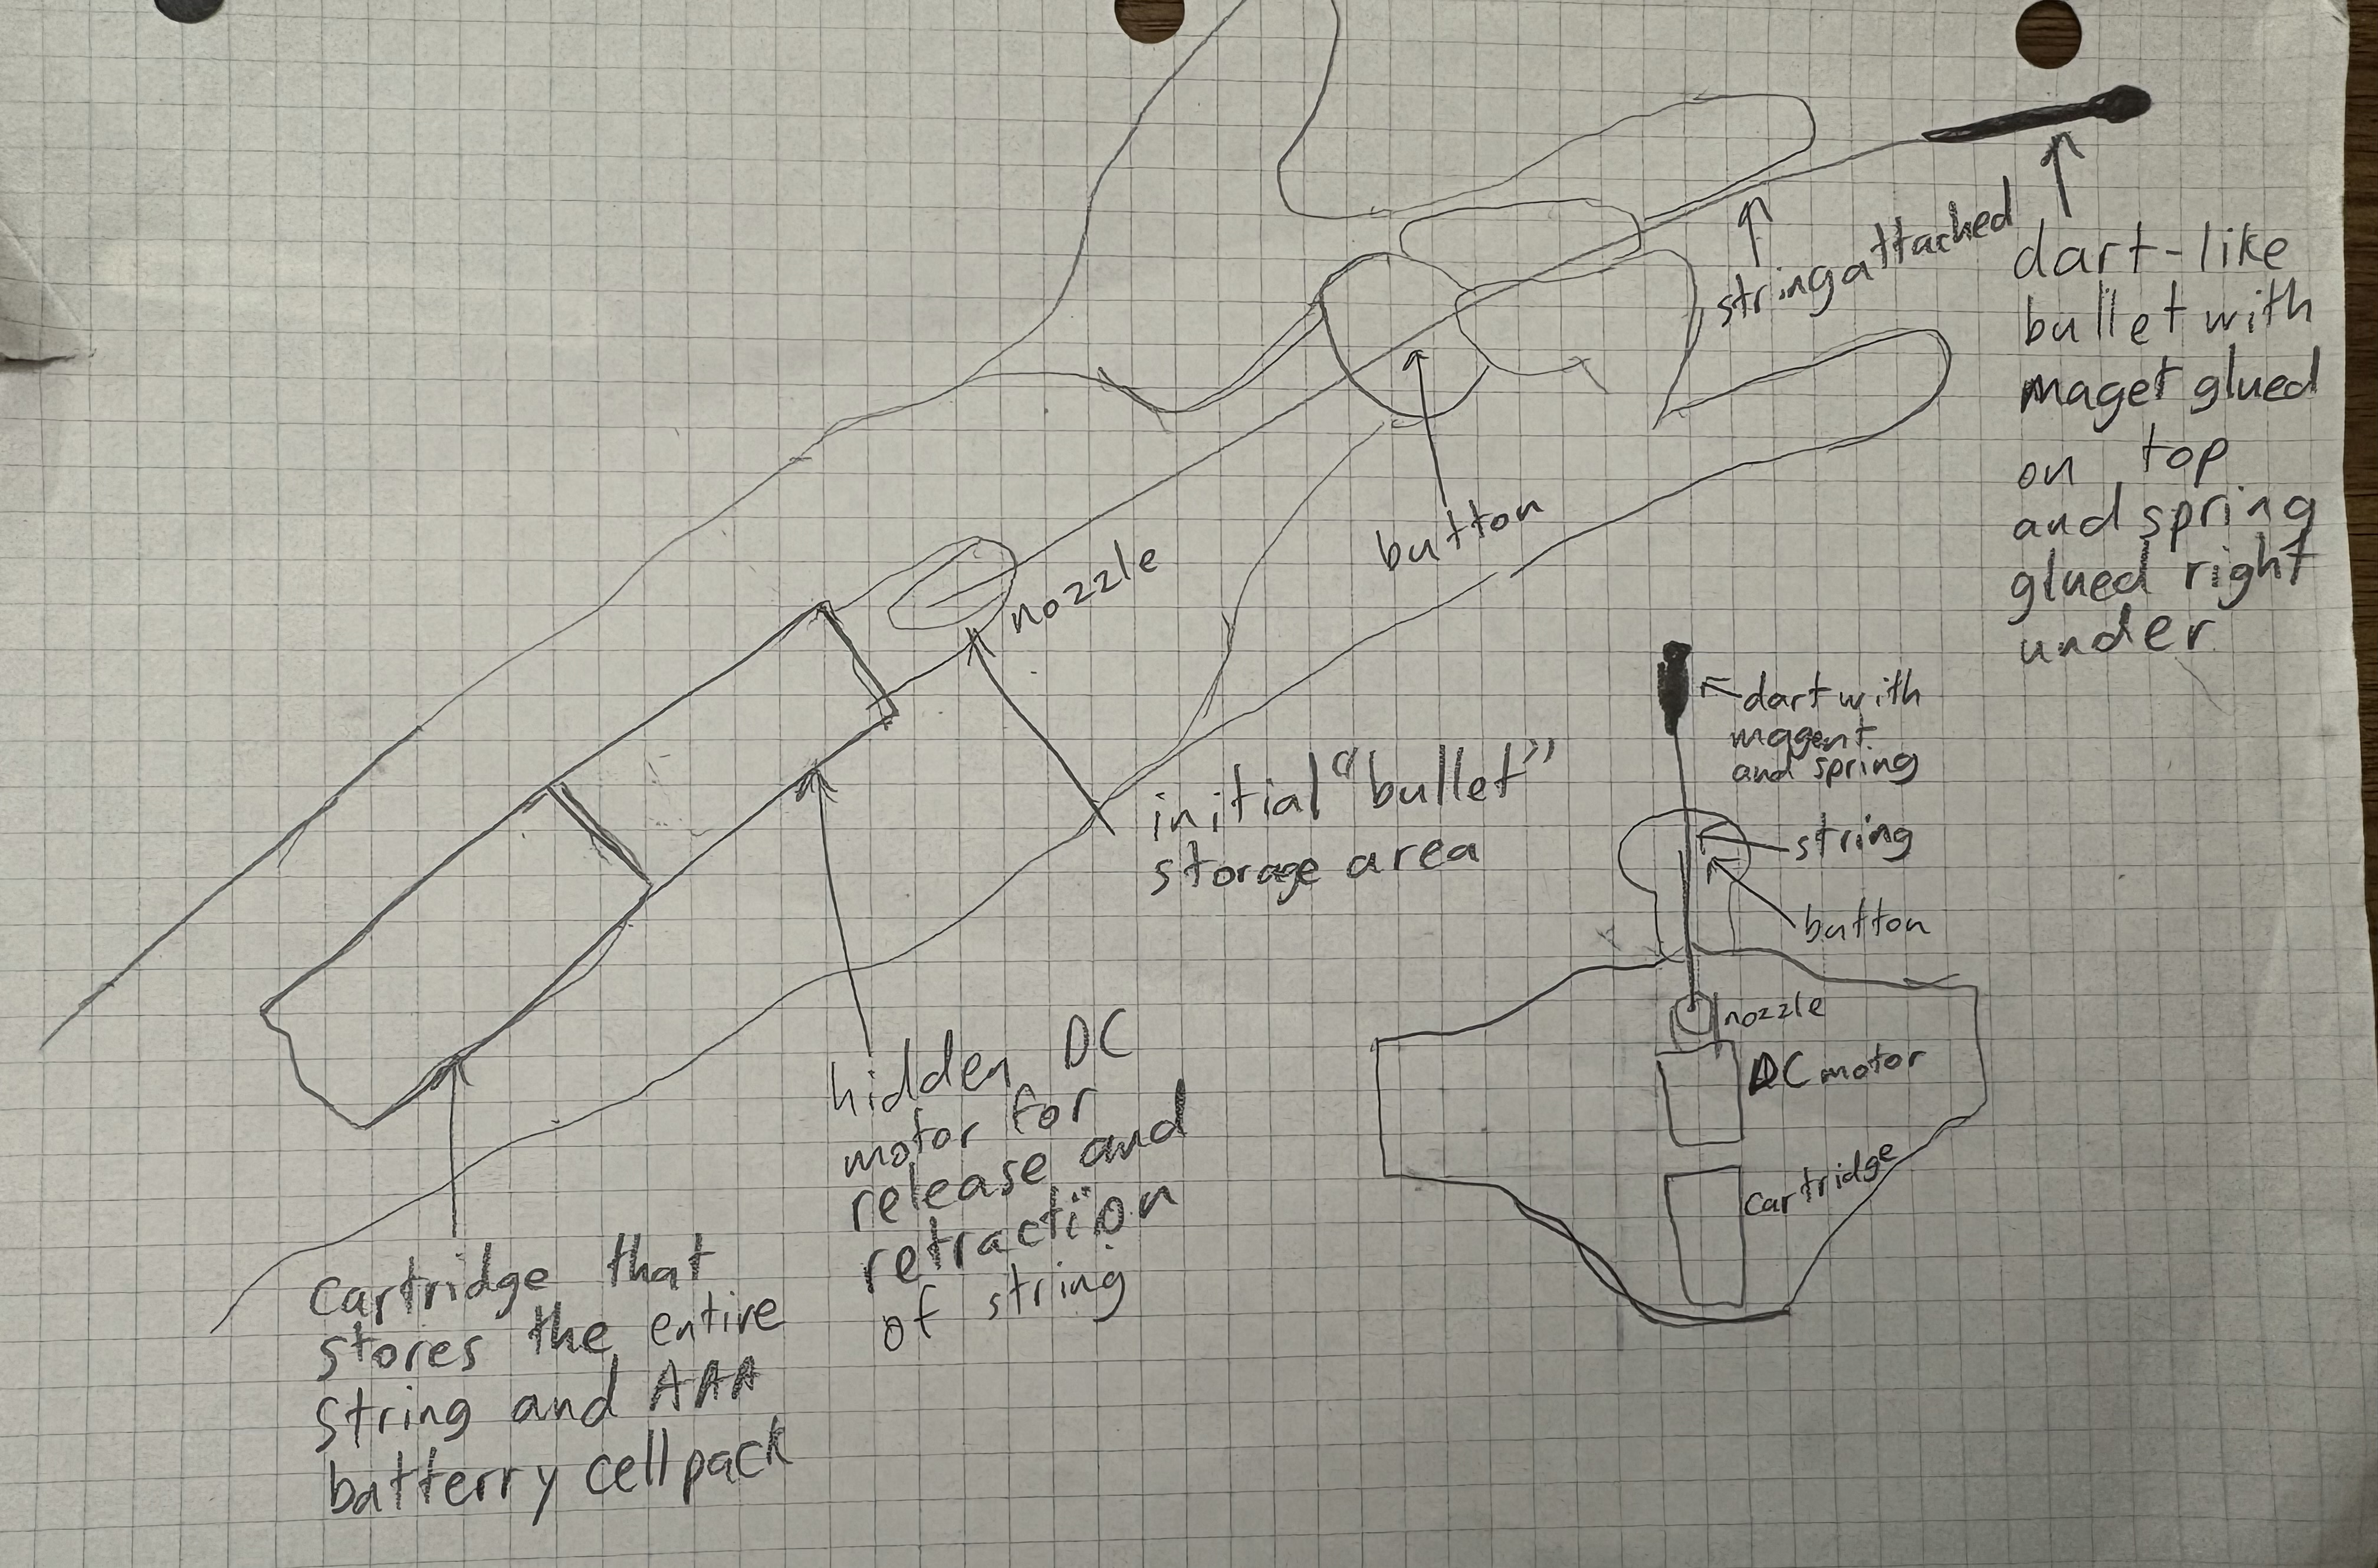 string attached
dart-like
bullet with
maget glued
on top
and spring
glued right
under
button
nozzle
initial "bullet"
storage area
hidden DC
motor for
release and
retraction
of string
cartridge that
stores the entire
string and AAA
batterry cell pack
dart with
magent
and spring
string
button
nozzle
DC motor
cartridge